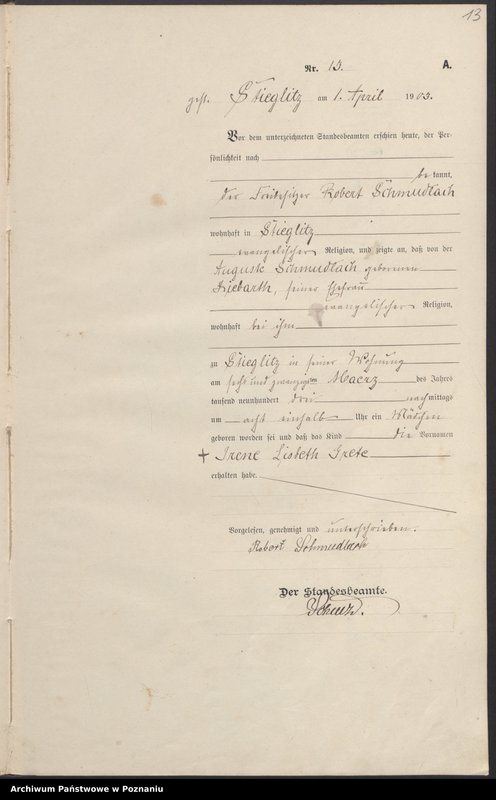 13
Nr. 13.
A.
gest. Stieglitz am 1. April 1903.
Vor dem unterzeichneten Standesbeamten erschien heute, der Per-
sönlichkeit nach
be kannt,
der Robert Schmudlach
wohnhaft in Stieglitz
evangelischer Religion, und zeigte an, daß von der
Auguste Schmudlach geborenen
seiner Ehefrau
evangelischer Religion,
wohnhaft bei ihm
zu Stieglitz in seiner Wohnung
am sechs und zwanzigsten Maerz des Jahres
tausend neunhundert drei nachmittags
um acht einhalb Uhr ein Mädchen
geboren worden sei und daß das Kind die Vornamen
+ Irene Lisbeth Grete
erhalten habe.
Vorgelesen, genehmigt und unterschrieben.
Robert Schmudlach
Der Standesbeamte.
Archiwum Państwowe w Poznaniu